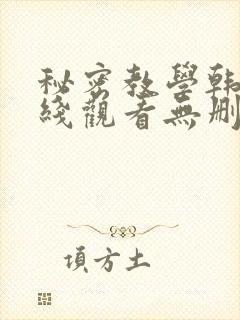 秘密教學韩
綫觀看無刪
項方土